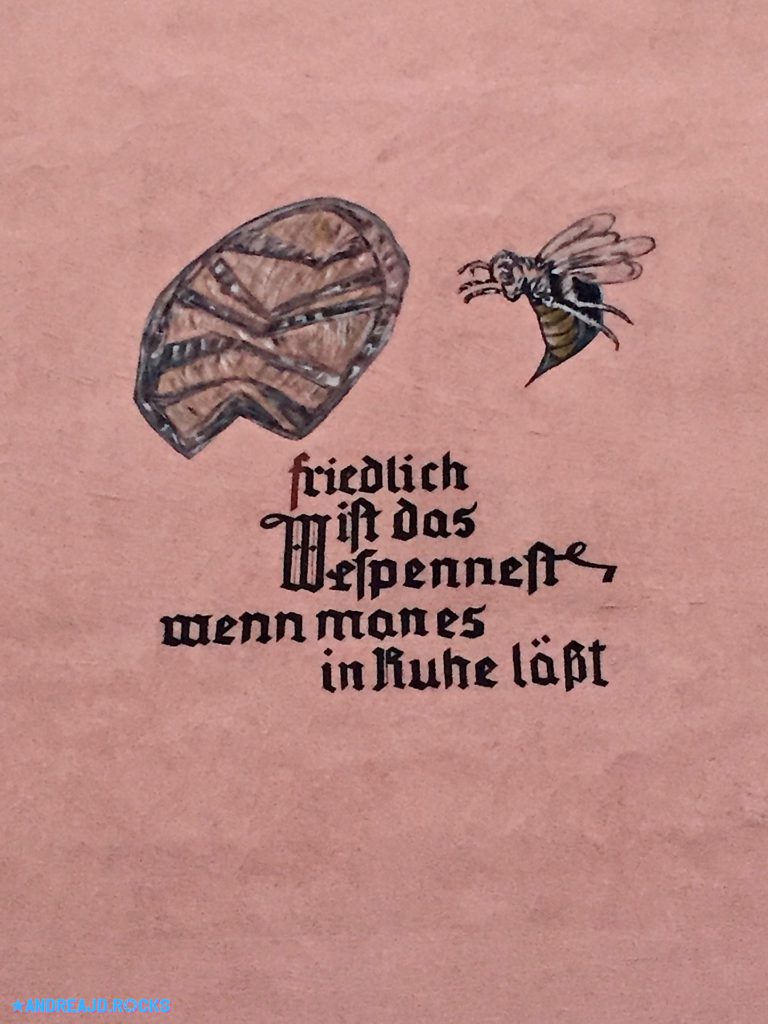 friedlich
ist das
Wespennest
wenn man es
in Ruhe läßt
★ANDREAJD.ROCKS